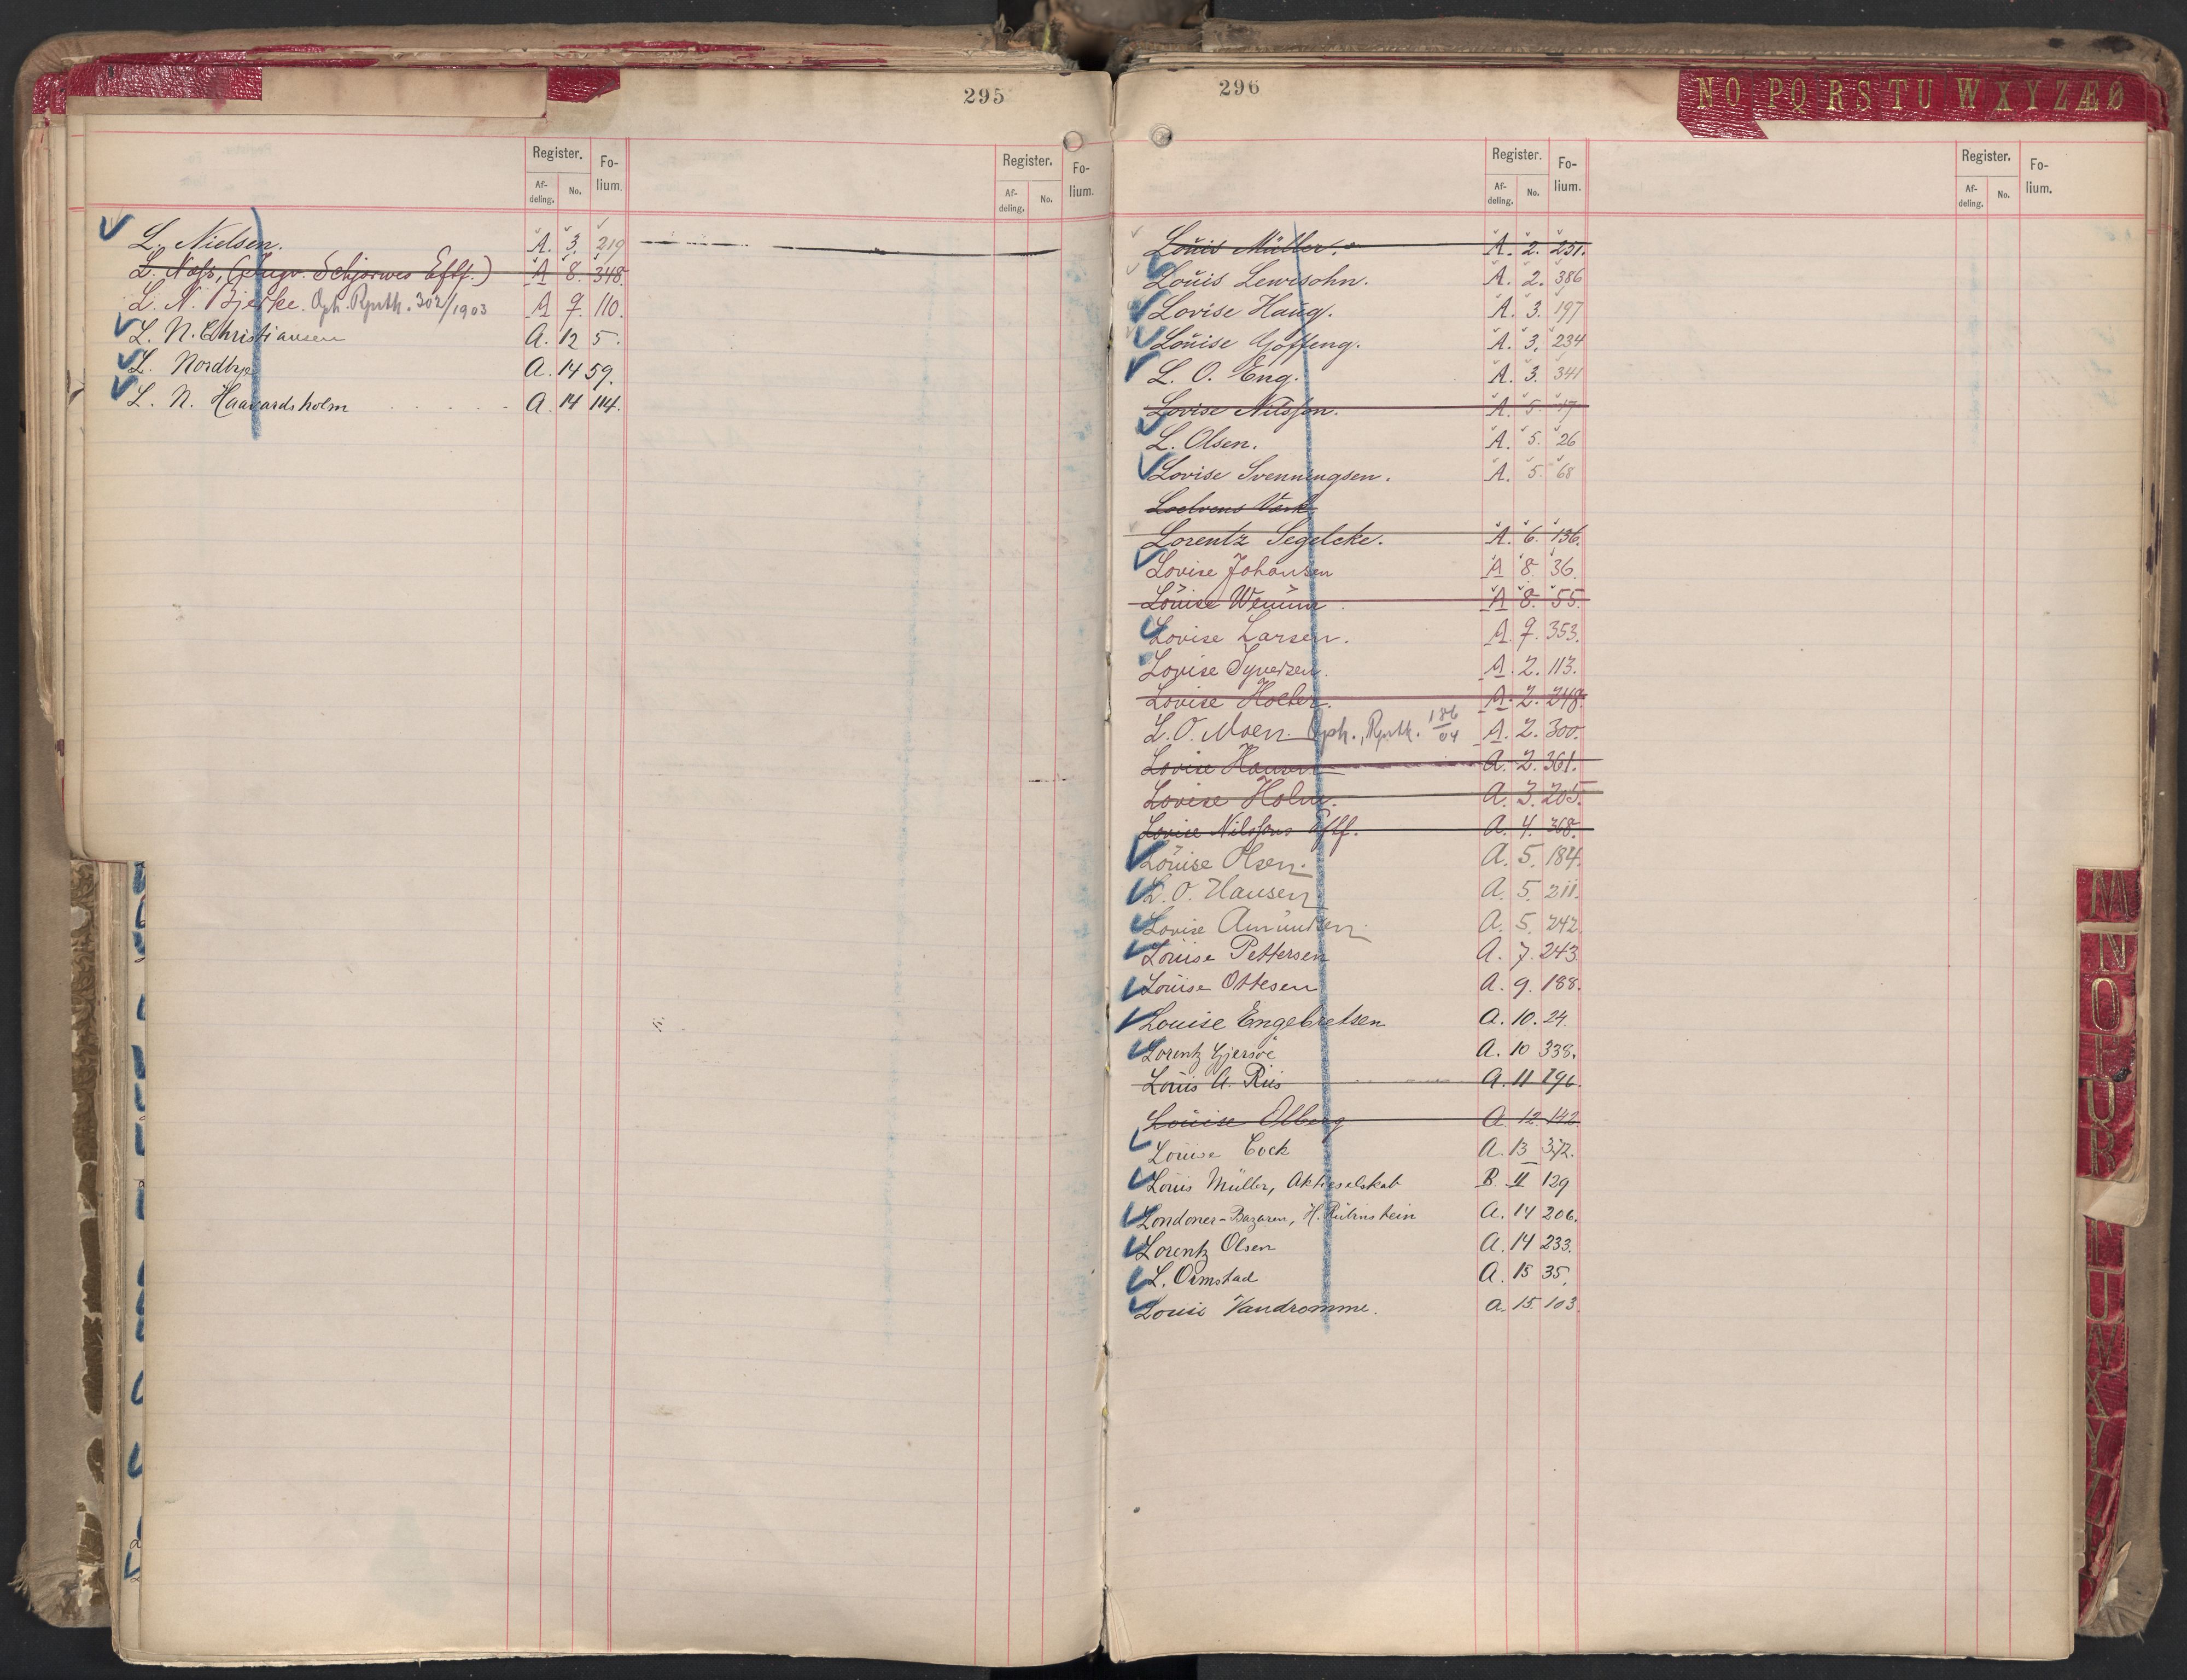 295
Register. Fo-
lium.
Af-
deling. No.
Register. Fo-
lium.
Af-
deling. No.
L. Nielsen. A. 3. 219
L. Næss, (Ingv. Schjørwes Eftf.) A 8. 348.
L. N. Bjerke. Oph. Rpnth. 302/1903 A 9. 110.
L. N. Christiansen A. 12 5.
L. Nordbye A. 14 59.
L. N. Haavardsholm A. 14 114.
296
N O P Q R S T U W X Y Z Æ Ø
Register. Fo-
lium.
Af-
deling. No.
Register. Fo-
lium.
Af-
deling. No.
Louis Müller. A. 2. 251.
Louis Lewisohn. A. 2. 386
Lovise Haug. A. 3. 197
Louise Goffeng. A. 3. 234
L. O. Eng. A. 3. 341
Lovise Nilsson. A. 5. 17
L. Olsen. A. 5. 26
Lovise Svenningsen. A. 5. 68
Lorentz Segelcke. A. 6. 136.
Lovise Johansen A 8. 36.
Louise Wennir A 8. 55.
Lovise Larsen. A. 9. 353.
Lovise Syversen. A. 2. 113.
Lovise Holter. A. 2. 248.
L. O. Moen. Oph., Rpnth. 186/04 A. 2. 300.
Lovise Hansen A. 2. 361.
Lovise Holm. A. 3. 205.
Lovise Nilssons Eftf. A. 4. 368.
Louise Olsen. A. 5. 184.
L. O. Hansen A. 5. 211.
Lovise Amundsen. A. 5. 242.
Louise Pettersen A. 7. 243
Louise Ottesen A. 9. 188.
Louise Engebretsen A. 10. 24.
Lorentz Gjersøe A. 10 338.
Louis A. Riis A. 11 196.
Louise Olberg A. 12. 142
Louise Cock A. 13 372.
Louis Müller, Aktieselskab B. II 129
Londoner-Bazaren, H. Rubinstein A. 14 206.
Lorentz Olsen A. 14 233.
L. Ormstad A. 15 35.
Louis Vandromme. A. 15. 103.
M
N
O